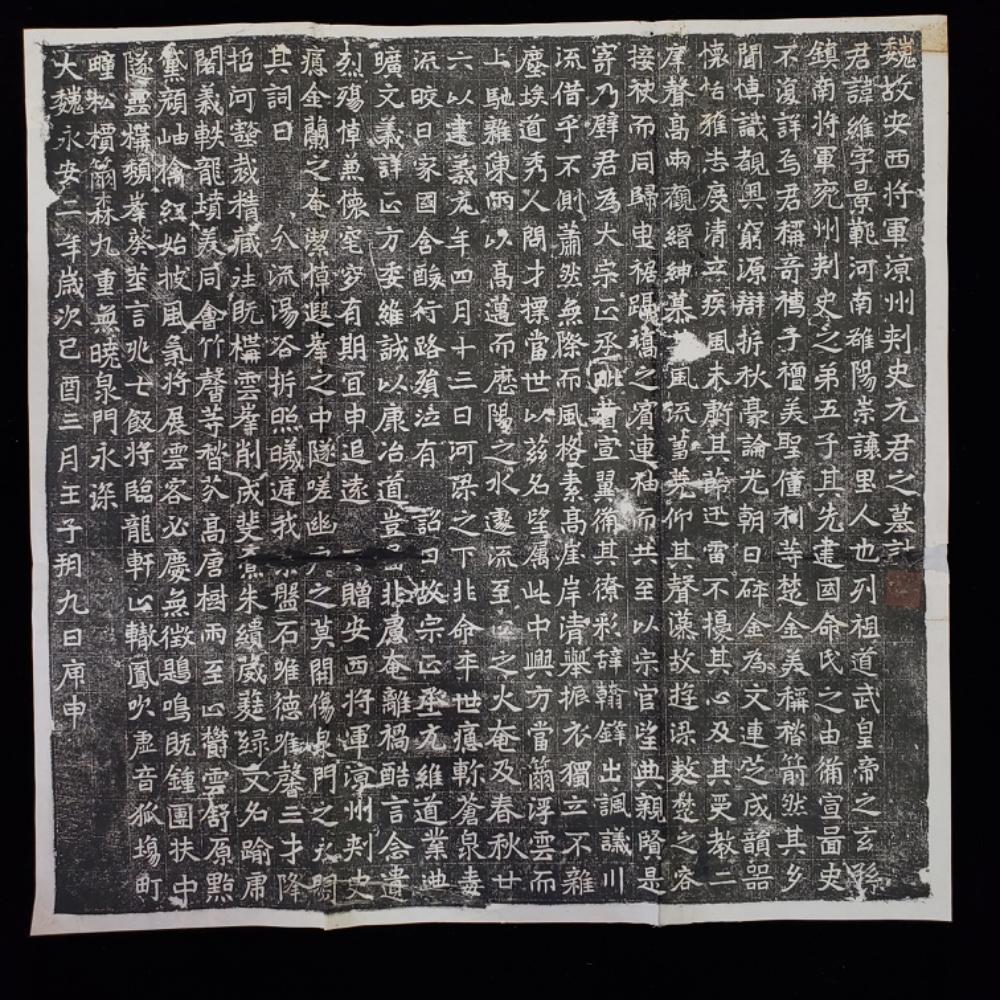 魏故安西將軍涼州刾史元君之墓誌
君諱維字景範河南雒陽崇讓里人也列祖道武皇帝之玄孫
鎮南將軍兖州刾史之弟五子其先建國命氏之由備宣啚史
不復詳焉君稱奇襁子禮美聖僮利等楚金美稱稽箭然其乡
聞博識覩奧窮源辯析秋豪論光朝日碎金為文連芝成韻器
懷怙雅志度清立疾風未虧其節迅雷不擾其心及其受教二
庠聲高兩觀縉紳慕其風流萬荒仰其聲藻故遊梁遨楚之容
接袂而同歸曳裾躡𪨗之濱連袖而共至以宗官望典親賢是
寄乃辟君為大宗正丞毗贊宣翼備其僚彩辭翰鋒出諷議川
流借乎不側蕭然無際而風格素高崖岸清舉振衣獨立不雜
塵埃道秀人間才摽當世以茲名望属此中興方當籋浮雲而
上馳雜陳雨以高邁而歷陽之水遽流至心之火奄及春秋廿
六以建義元年四月十三日河梁之下非命卒世痛斬蒼泉毒
流晈日家國含酸行路殞泣有 詔曰故宗正丞元維道業典
曠文義詳正方委維誠以康治道豈啚非慮奄離禍酷言念遺
烈殤悼兼懷窀穸有期宜申追遠 可贈安西將軍涼州刾史
痛金蘭之奄潔悼遐峯之中隧嗟幽户之莫開傷泉門之永閟
其詞曰 分流湯谷折照曦遅我家盤石唯德唯馨三才降
招河嶽裁精藏法既構雲峯削成斐亹朱繢葳蕤緑文名踰席
閣義軼龍墳美同會竹馨等稽芥高唐楒雨至山欝雲舒原點
黛顏岫擒紅始披風氣將展雲客必慶無徵鵾鳴既鍾團扶中
隧靈構頹峯葵埊言兆亡飯將臨龍軒山轍鳳吹虛音狐塲町
疃松檟籋森九重無曉泉門永深
大魏永安二年歲次己酉三月壬子朔九日庚申